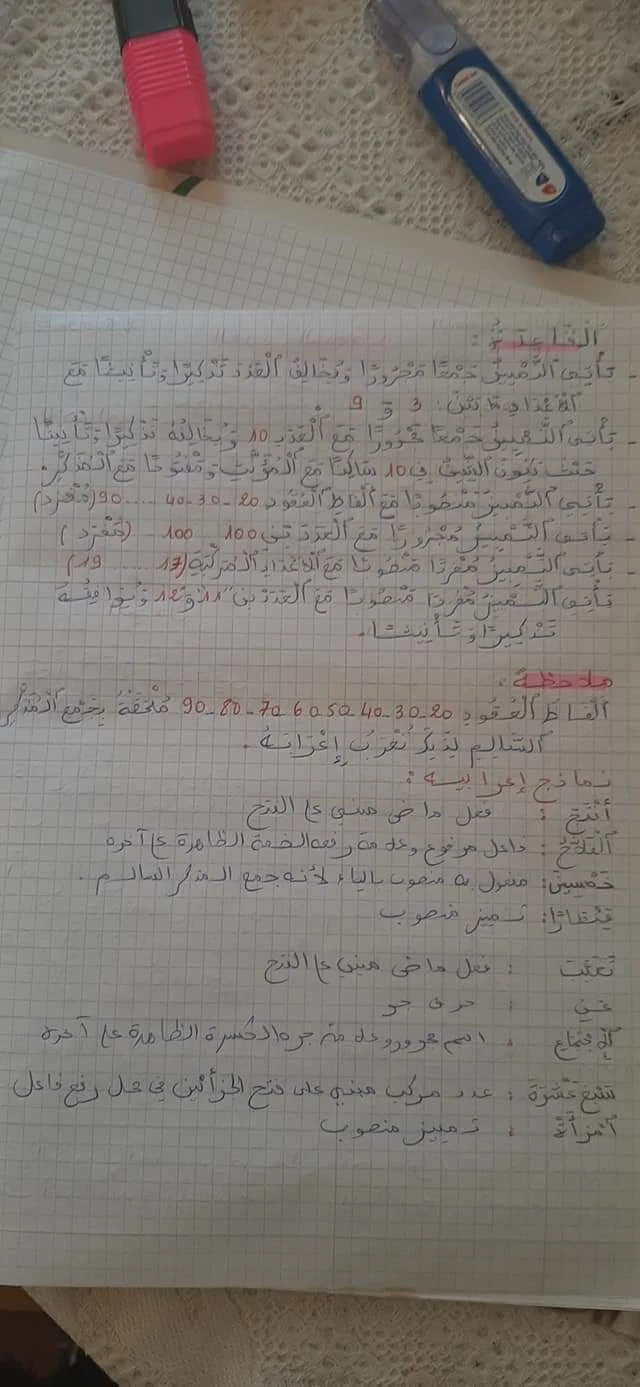 اَلْقَاعِدَةُ :
- يَأْتِي التَّمْيِيزُ جَمْعًا مَجْرُورًا وَيُخَالِفُ الْعَدَدَ تَذْكِيرًا وَتَأْنِيثًا مَعَ
الْأَعْدَادِ مَا بَيْنَ: 3 وَ 9 .
- يَأْتِي التَّمْيِيزُ جَمْعًا مَجْرُورًا مَعَ الْعَدَدِ 10 وَيُخَالِفُهُ تَذْكِيرًا وَتَأْنِيثًا
حَيْثُ تَكُونُ الشِّينُ فِي 10 سَاكِنًا مَعَ الْمُؤَنَّثِ وَمَفْتُوحًا مَعَ الْمُذَكَّرِ.
- يَأْتِي التَّمْيِيزُ مَنْصُوبًا مَعَ أَلْفَاظِ الْعُقُودِ 20-30-40 .... 90 (مُفْرَد)
- يَأْتِي التَّمْيِيزُ مَجْرُورًا مَعَ الْعَدَدَيْنِ 100 .... 100 (مُفْرَد)
- يَأْتِي التَّمْيِيزُ مُفْرَدًا مَنْصُوبًا مَعَ الْأَعْدَادِ الْمُرَكَّبَةِ (17 .... 19)
يَأْتِي التَّمْيِيزُ مُفْرَدًا مَنْصُوبًا مَعَ الْعَدَدَيْنِ "11 و 12" وَيُوَافِقُهُ
تَذْكِيرًا وَتَأْنِيثًا.
ملاحظة .
أَلْفَاظُ الْعُقُودِ 20-30-40-50-60-70-80-90 مُلْحَقَةٌ بِجَمْعِ الْمُذَكَّرِ
السَّالِمِ لِذَلِكَ تُعْرَبُ إِعْرَابَهُ.
نماذج إعرابية :
أَنْتَجَ : فعل ماض مبني على الفتح
اَلْفَلَّاحُ : فاعل مرفوع وعلامة رفعه الضمة الظاهرة على آخره
خَمْسِينَ: مفعول به منصوب بالياء لأنه جمع المذكر السالم .
قِنْطَارًا: تمييز منصوب
تَغَيَّبَتْ : فعل ماض مبني على الفتح
عَنِ : حرف جر
الْاِجْتِمَاعِ : اسم مجرور وعلامة جره الكسرة الظاهرة على آخره
تِسْعَ عَشْرَةَ : عدد مركب مبني على فتح الجزأين في محل رفع فاعل
اَمْرَأَةً : تمييز منصوب